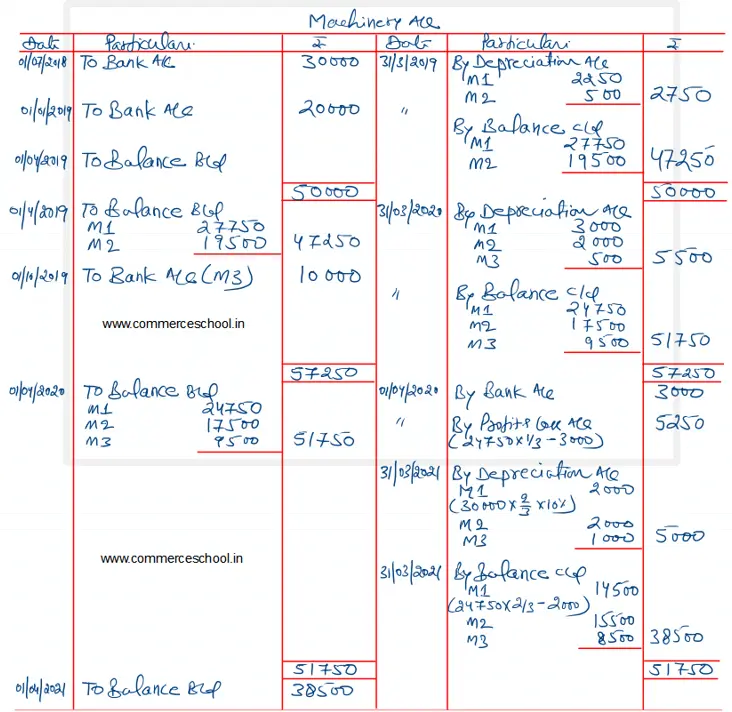 Machinery A/c
Date Particulars ₹ Date Particulars ₹
01/07/2018 To Bank A/c 30000 31/3/2019 By Depreciation A/c
M1 2250
M2 500 2750
01/01/2019 To Bank A/c 20000 "
By Balance c/d
M1 27750
01/04/2019 To Balance B/d M2 19500 47250
50000 50000
01/4/2019 To Balance B/d 31/03/2020 By Depreciation A/c
M1 27750 M1 3000
M2 19500 47250 M2 2000
M3 500 5500
01/10/2019 To Bank A/c (M3) 10000
" By Balance c/d
M1 24750
www.commerceschool.in M2 17500
M3 9500 51750
57250 57250
01/04/2020 To Balance B/d 01/04/2020 By Bank A/c 3000
M1 24750
M2 17500 " By Profit & Loss A/c 5250
M3 9500 51750 (24750x1/3-3000)
31/03/2021 By Depreciation A/c
M1 2000
(30000x2/3x10%)
M2 2000
M3 1000 5000
www.commerceschool.in
31/03/2021 By Balance c/d
M1 14500
(24750x2/3-2000)
M2 15500
M3 8500 38500
51750 51750
01/04/2021 To Balance B/d 38500